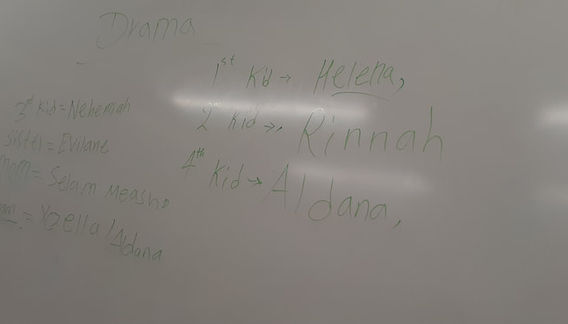 Drama
1st Kid → Helena,
2 Kid → Rinnah
4th Kid → Aldana,
3rd Kid = Nehemah
sister = Evilane
mom = Selam Measho
= Yoella / Aldana